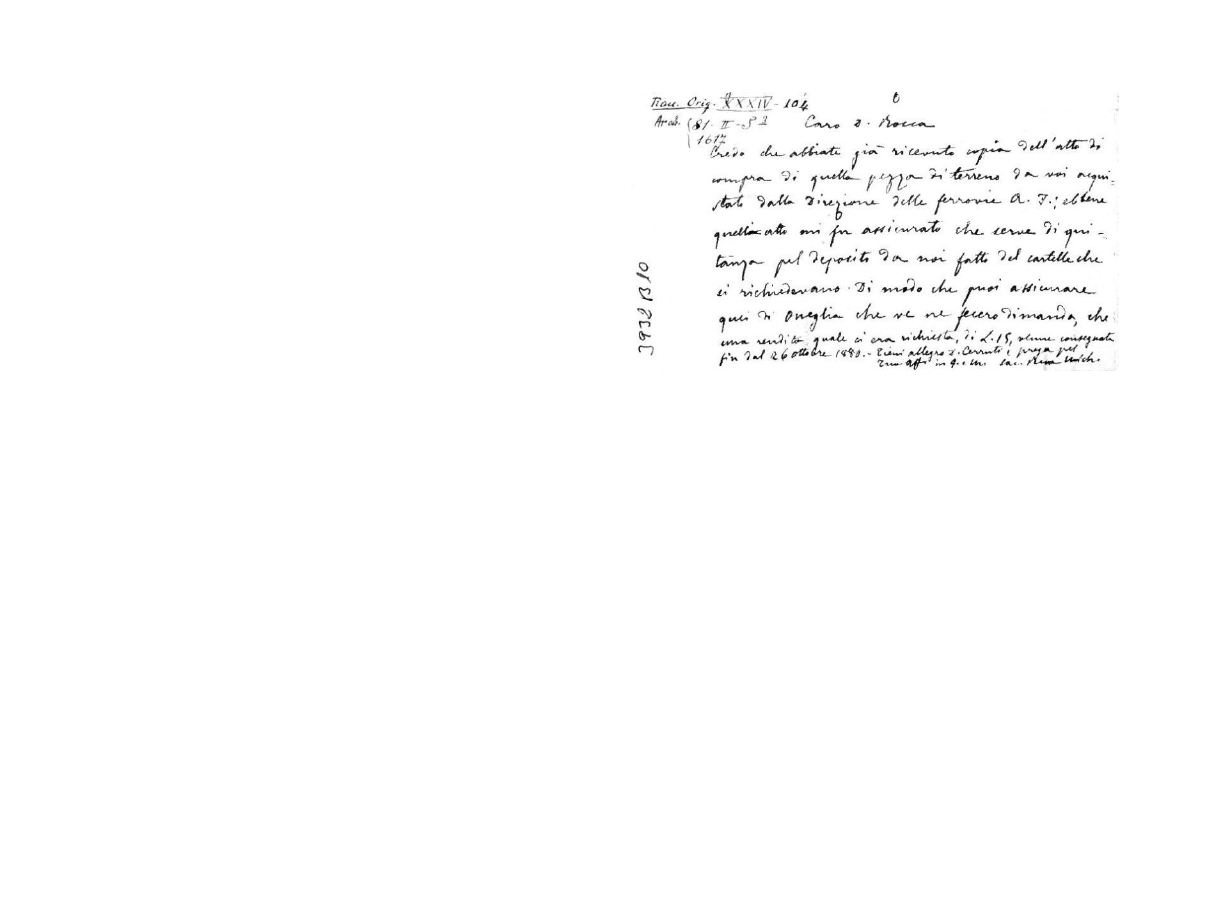 Orig. XXXIV - 104
Arch. 81 - II - S
1617
Caro D. Rocca
Credo che abbiate già ricevuto copia dell'atto di
compra di quella pezza di terreno da voi acqui-
stato dalla Direzione delle ferrovie A. I.; ebbene
atto mi fu assicurato che serve di qui-
tanza pel deposito da noi fatto del cartelle che
si richiedevano. Di modo che puoi assicurare
quei di Oneglia che ve ne fecero dimanda, che
una rendita, quale ci era richiesta, di L. 15, venne consegnata
fin dal 26 ottobre 1880. - Tieni allegro D. Cerruti e prega pel
Tuo aff. in G. e M. Sac. Rua Mich.
3932 B 10